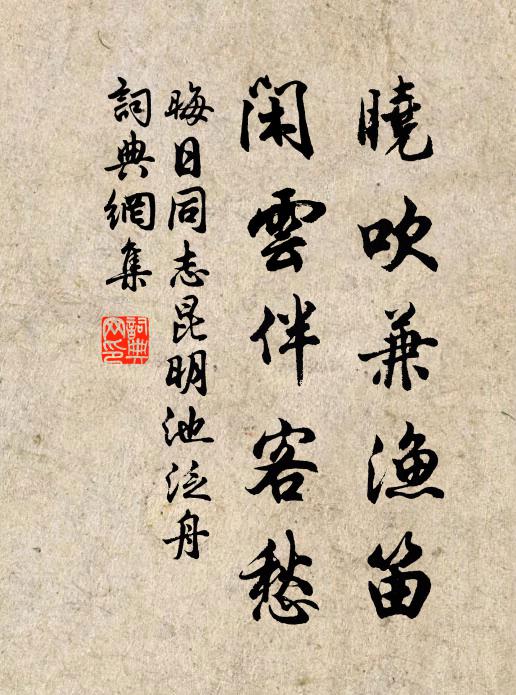 曉吹兼漁笛
閑雲伴客愁
晦日同志昆明池泛舟
詞典網集
詞典網印